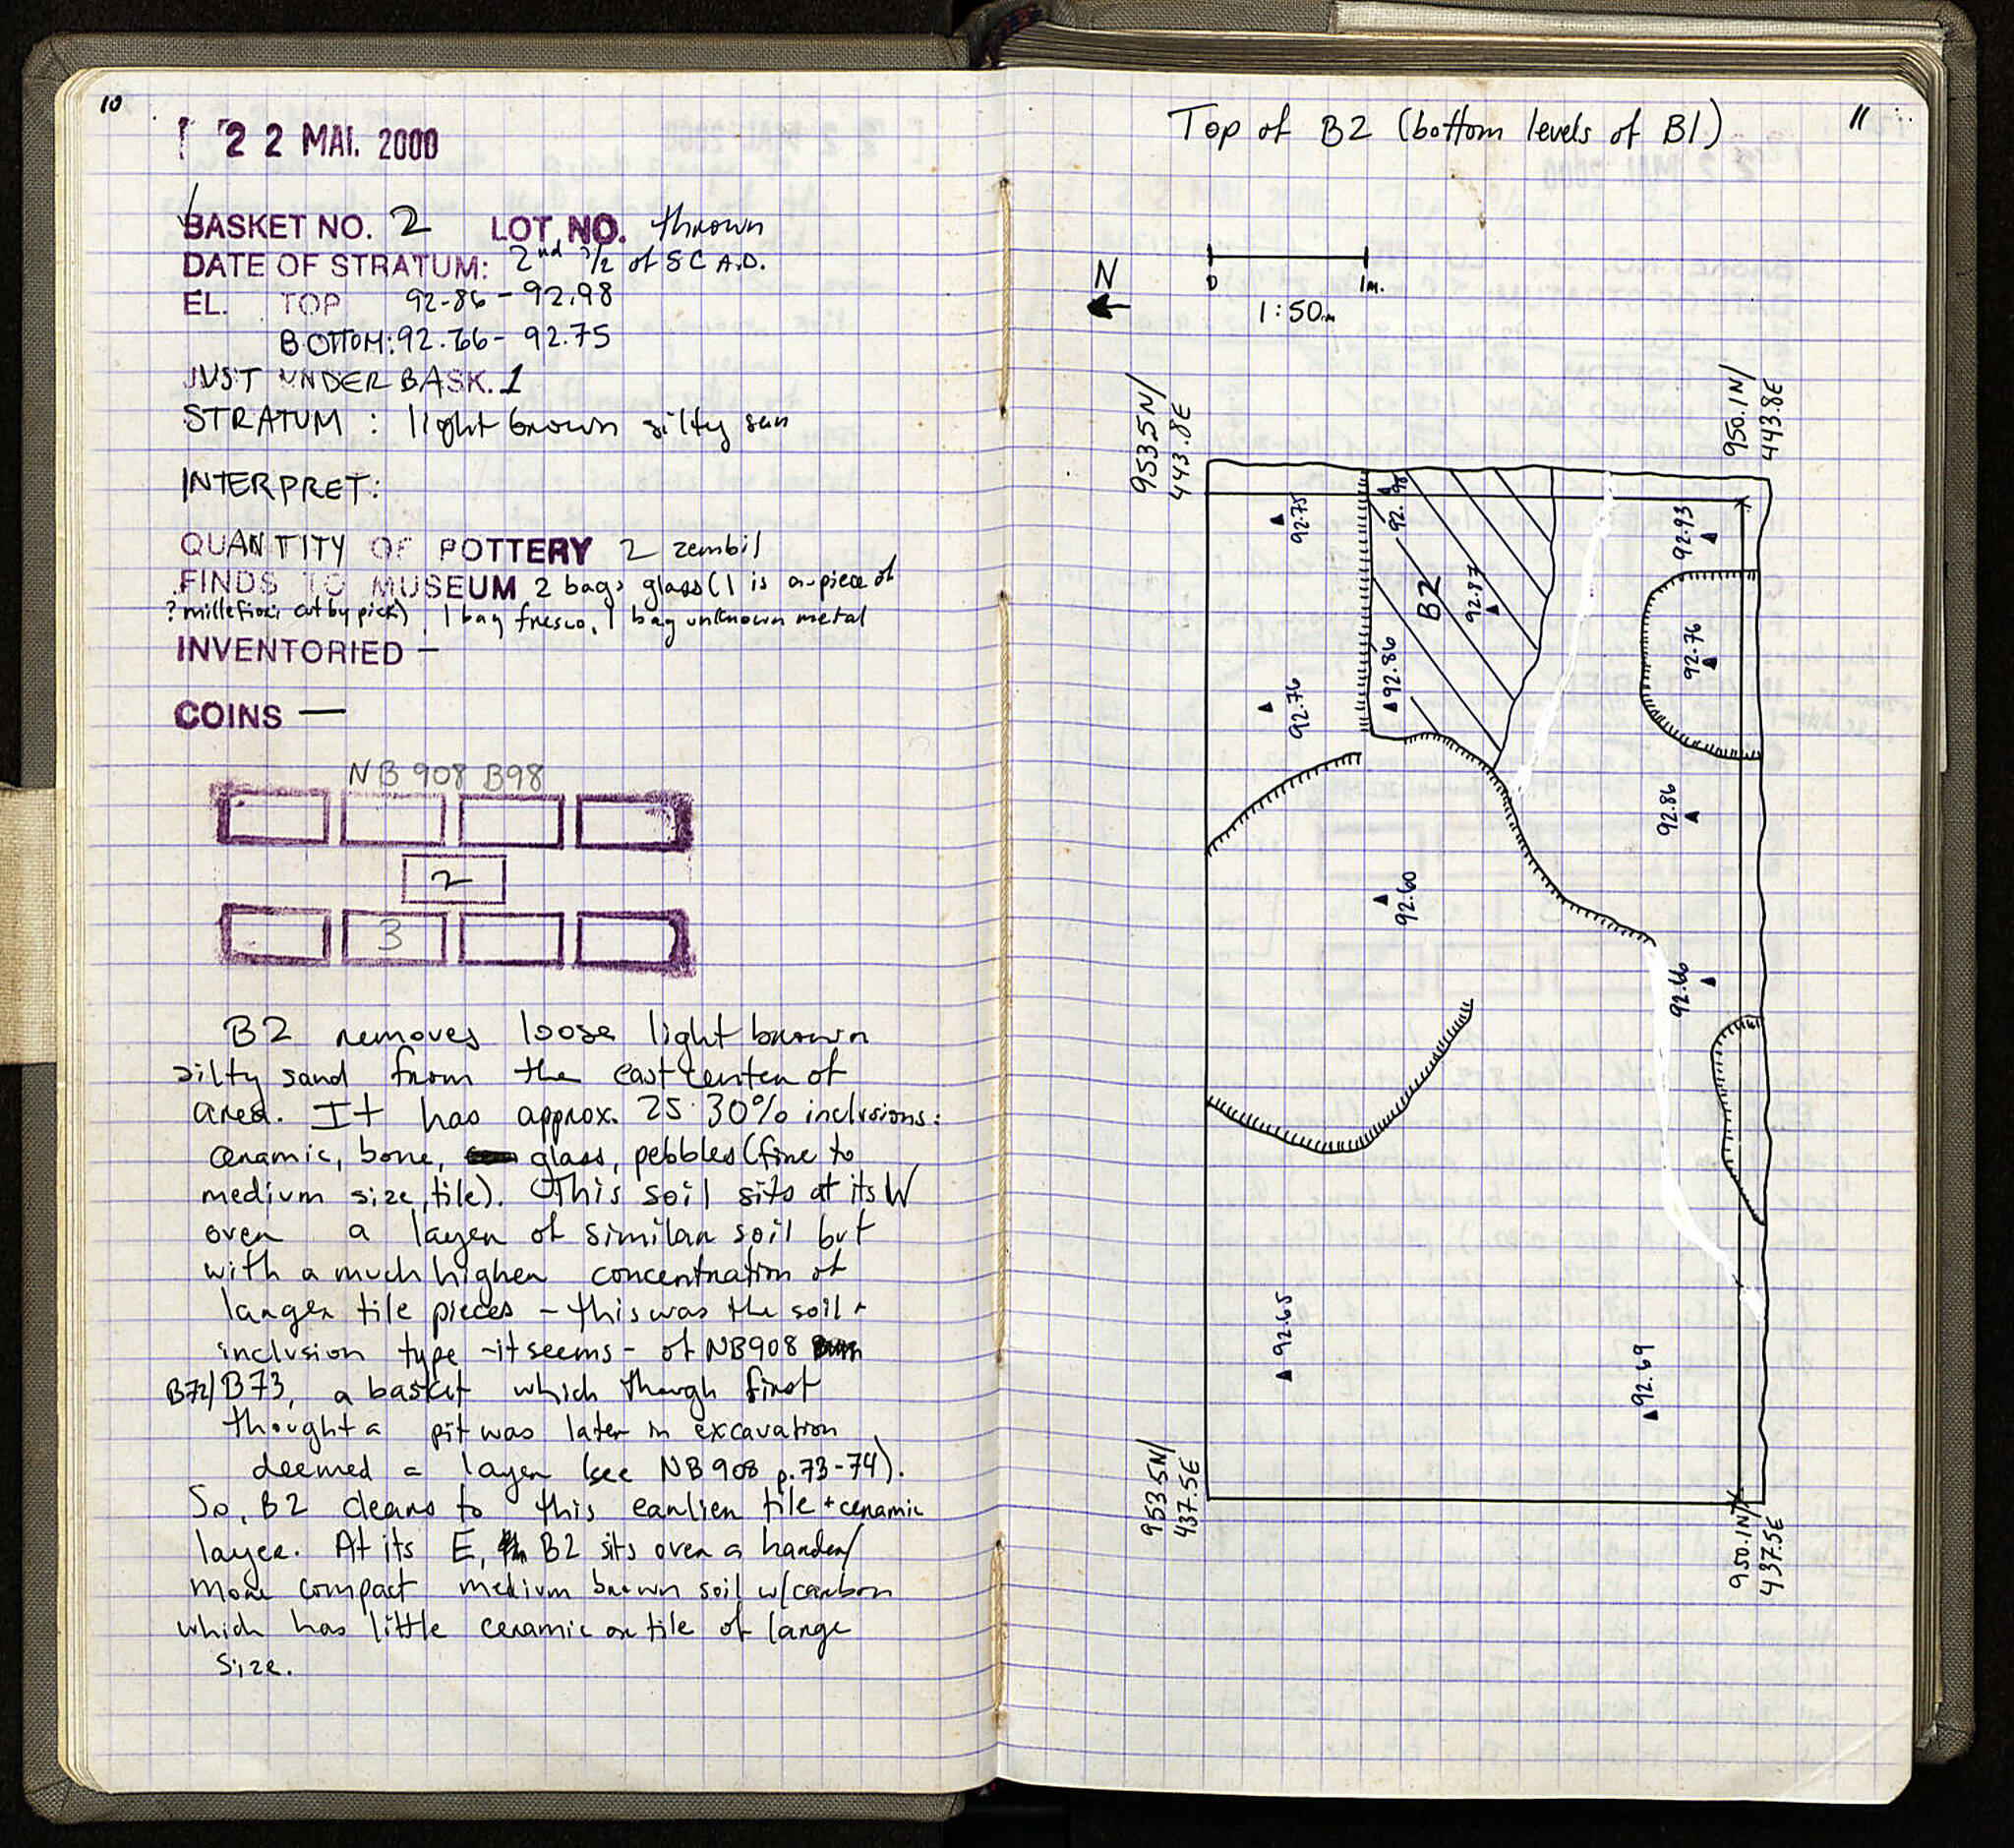 10
22 MAI. 2000
BASKET NO. 2 LOT NO. thrown
DATE OF STRATUM: 2nd 1/2 of 5C A.D.
EL. TOP 92.86 - 92.98
BOTTOM: 92.66 - 92.75
JUST UNDER BASK. 1
STRATUM : light brown silty san
INTERPRET:
QUANTITY OF POTTERY 2 zembil
FINDS TO MUSEUM 2 bags glass (1 is a piece of
? millefiori cut by pick) 1 bag fresco, 1 bag unknown metal
INVENTORIED —
COINS —
NB 908 B98
2
3
B2 removes loose light brown
silty sand from the east center of
area. It has approx. 25-30% inclusions:
ceramic, bone, glass, pebbles (fine to
medium size, tile). This soil sits at its W
over a layer of similar soil but
with a much higher concentration of
larger tile pieces - this was the soil +
inclusion type - it seems - of NB908
B72/B73, a basket which though first
thought a pit was later in excavation
deemed a layer (see NB 908 p. 73-74).
So, B2 cleans to this earlier tile + ceramic
layer. At its E, B2 sits over a harder/
more compact medium brown soil w/carbon
which has little ceramic or tile of large
size.
11
Top of B2 (bottom levels of B1)
N
0 1m.
1:50m
953.5N/
443.8E
950.1N/
443.8E
92.75
92.98
92.93
B2
92.87
92.76
92.86
92.76
92.86
92.60
92.66
92.65
92.69
953.5N/
437.5E
950.1N/
437.5E